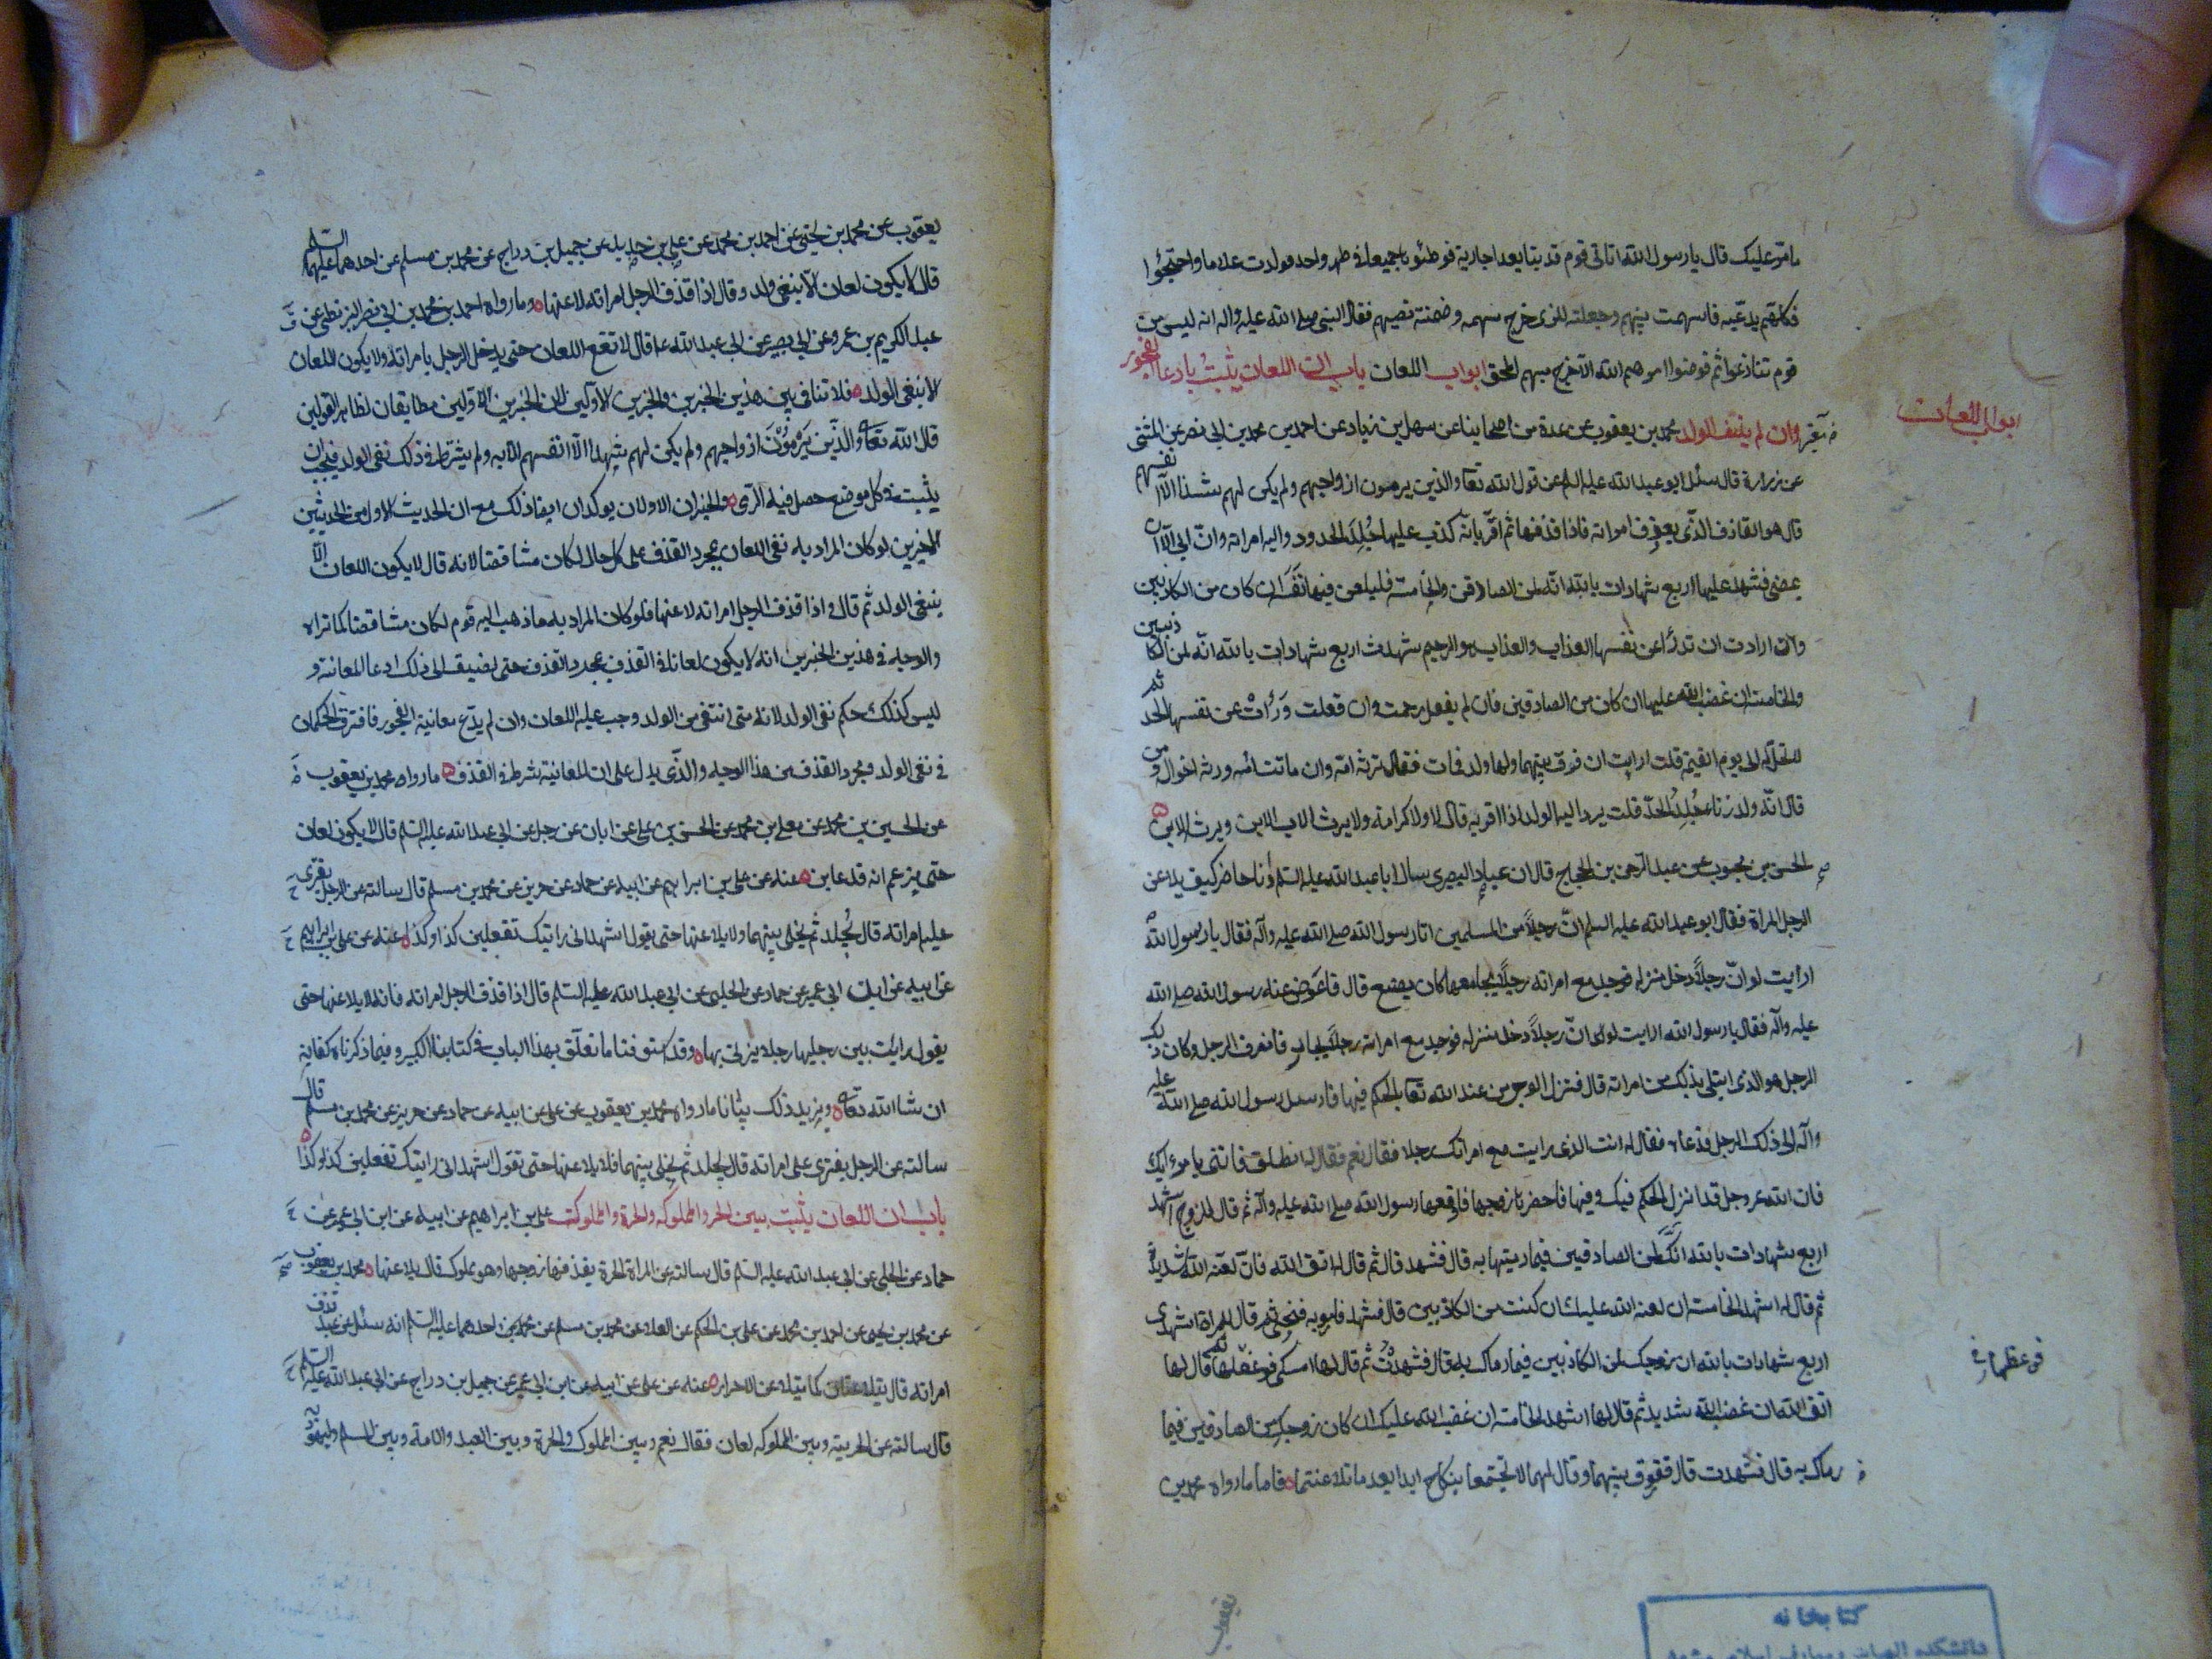 ما مر عليك قال يا رسول الله اتاني قوم قد تبايعوا جارية فوطئوها جميعا في طهر واحد فولدت غلاما واحتجوا
فكلهم يدعيه فاسهمت بينهم وجعلته للذي خرج سهمه وضمنته نصيبهم فقال النبي صلى الله عليه واله انه ليس من
قوم تنازعوا ثم فوضوا امرهم الله الا خرج سهم المحق ابواب اللعان باب ان اللعان يثبت بادعا الفجور
ابواب اللعان
وان لم ينتف الولد محمد بن يعقوب عن عدة من اصحابنا عن سهل بن زياد عن احمد بن محمد بن ابي نصر عن المثنى
عن زرارة قال سئل ابو عبد الله عليه السلم عن قول الله تعا والذين يرمون ازواجهم ولم يكن لهم شهدا الا انفسهم
قال هو القاذف الذي يقذف امراته فاذا قذفها ثم اقر بانه كذب عليها جلد الحدود واليه امراته وان ابى الا ان
يمضى فشهد عليها اربع شهادات بالله انه لمن الصادقين والخامسة فليلعن فيها نفسه ان كان من الكاذبين
وان ارادت ان تدرأ عن نفسها العذاب والعذاب هو الرجيم شهدت اربع شهادات بالله انه لمن الكاذبين
والخامسة ان غضب الله عليها ان كان من الصادقين فان لم يفعل رجمت وان فعلت درأت عن نفسها الحد ثم
لا تحل له الى يوم القيمة قلت ارايت ان فرق بينهما ولها ولد فمات فقال ترثه امه وان ماتت امه ورثه اخواله ومن
قال انه ولد زنا جلد الحد قلت يرد اليه الولد اذا اقر به قال لا ولا كرامة ولا يرث الاب الابن ويرث الابن
الحسن بن محبوب عن عبد الرحمن بن الحجاج قال ان عباد البصرى سال ابا عبد الله عليه السلم وأنا حاضر كيف يلاعن
الرجل المراة فقال ابو عبد الله عليه السلم ان رجلا من المسلمين اتا رسول الله صلى الله عليه وآله فقال يا رسول الله
ارأيت لو ان رجلا دخل منزله فوجد مع امراته رجلا يجامعها ما كان يصنع قال فاعرض عنه رسول الله صلى الله
عليه وآله فقال يا رسول الله ارايت لو ان رجلا دخل منزله فوجد مع امراته رجلا فانصرف الرجل وكان ذلك
الرجل هو الذى ابتلى بذلك من امراته قال فنزل الوحي من عند الله تعا بالحكم فيها فارسل رسول الله صلى الله عليه
وآله الى ذلك الرجل فدعاه فقال له انت الذى رايت مع امراتك رجلا فقال نعم فقال له انطلق فائتنى بامرءتك
فان الله عز وجل قد انزل الحكم فيك وفيها فاحضرها زوجها فاوقفها رسول الله صلى الله عليه وآله ثم قال للزوج اشهد
اربع شهادات بالله انك لمن الصادقين فيما رميتها به قال فشهد قال ثم قال له اتق الله فان لعنة الله شديدة
ثم قال له اشهد الخامسة ان لعنة الله عليك ان كنت من الكاذبين قال فشهد فامر به فنحى ثم قال للمراة اشهدى
اربع شهادات بالله ان زوجك لمن الكاذبين فيما رماك به قال فشهدت ثم قال لها امسكى فوعظها ثم قال لها
فوعظها
اتق الله ان غضب الله شديد ثم قال لها اشهدى الخامسة ان غضب الله عليك ان كان زوجك من الصادقين فيما
رماك به قال فشهدت قال ففرق بينهما وقال لهما لا تجتمعا بنكاح ابدا بعد ما تلاعنتما فاما ما رواه محمد بن
يعقوب
كتابخانه
دانشكده الهيات ومعارف اسلامى مشهد
يعقوب عن محمد بن يحيى عن احمد بن محمد عن علي بن حديد عن جميل بن دراج عن محمد بن مسلم عن احدهما عليهما السلم
قال لا يكون لعان الا بنفي ولد وقال اذا قذف الرجل امراته لاعنها وما رواه احمد بن محمد بن ابي نصر البزنطي عن
عبد الكريم بن عمرو عن ابي بصير عن ابي عبد الله ع قال لا تقع اللعان حتى يدخل الرجل بامراته ولا يكون اللعان
الا بنفي الولد فلا تنافي بين هذين الخبرين والخبرين الاولين لان الخبرين الاولين مطابقان لظاهر القران
قال الله تعا والذين يرمون ازواجهم ولم يكن لهم شهدا الا انفسهم الآيه ولم يشترط في ذلك نفي الولد فيجب ان
يثبت في كل موضع حصل فيه الرمي والخبران الاولان يوكدان ايضا ذلك مع ان الحديث الاول من الحديثين
الاخيرين لو كان المراد به نفي اللعان بمجرد القذف على كل حال لكان متناقضا لانه قال لا يكون اللعان الا
بنفي الولد ثم قال واذا قذف الرجل امراته لاعنها فلو كان المراد به ما ذهب اليه قوم لكان متناقضا كما تراه
والوجه في هذين الخبرين انه لا يكون لعانا في القذف بمجرد القذف حتى يضيف الى ذلك ادعا المعاينة و
ليس كذلك حكم نفي الولد لانه متى انتفى من الولد وجب عليه اللعان وان لم يدع معاينة الفجور فافترق الحكمان
في نفي الولد ومجرد القذف من هذا الوجه والذي يدل على ان المعاينة شرط في القذف ما رواه محمد بن يعقوب
عن الحسين بن محمد عن معلى بن محمد عن الحسن بن علي عن ابان عن رجل عن ابي عبد الله عليه السلم قال لا يكون لعان
حتى يزعم انه قد عاين عنه عن علي بن ابراهيم عن ابيه عن حماد عن حريز عن محمد بن مسلم قال سالته عن الرجل يفترى
على امراته قال يجلد ثم يخلى بينهما ولا يلاعنها حتى يقول اشهد اني رايتك تفعلين كذا وكذا عنه عن علي بن ابراهيم
عن ابيه عن ابن ابي عمير عن حماد عن الحلبي عن ابي عبد الله عليه السلم قال اذا قذف الرجل امراته فانه لا يلاعنها حتى
يقول رايت بين رجليها رجلا يزني بها وقد استوفينا ما تعلق بهذا الباب في كتابنا الكبير وفيما ذكرناه كفاية
ان شا الله تعا ويزيد ذلك بيانا ما رواه محمد بن يعقوب عن علي عن ابيه عن حماد عن حريز عن محمد بن مسلم قال
سالته عن الرجل يفترى على امراته قال يجلد ثم يخلى بينهما فلا يلاعنها حتى تقول اشهد اني رايتك تفعلين كذا وكذا
باب ان اللعان يثبت بين الحر والمملوكه والحرة والمملوك علي بن ابراهيم عن ابيه عن ابن ابي عمير عن
حماد عن الحلبي عن ابي عبد الله عليه السلم قال سالته عن المراة الحرة يقذفها زوجها وهو مملوك قال يلاعنها محمد بن يعقوب
عن محمد بن يحيى عن احمد بن محمد عن علي بن الحكم عن العلا عن محمد بن مسلم عن احدهما عليه السلم انه سئل عن عبد قذف
امراته قال يتلاعنان كما يتلاعن الاحرار عنه عن علي عن ابيه عن ابن ابي عمير عن جميل بن دراج عن ابي عبد الله عليه السلم
قال سالته عن الحر بينه وبين المملوكه لعان فقال نعم وبين المملوك والحرة وبين العبد والامة وبين المسلم واليهودية